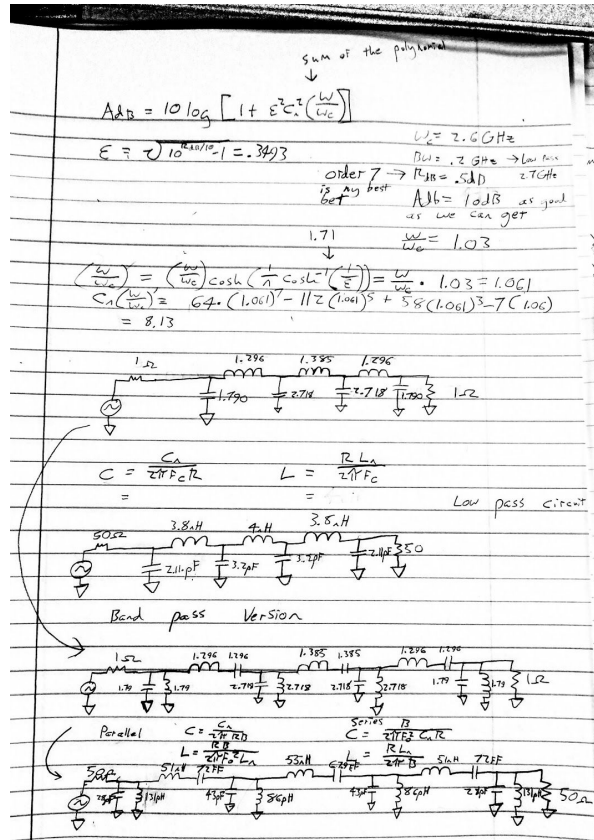 sum of the polynomial
↓
AdB = 10 log [1 + ε²Cₙ²(W/Wc)]
ε = √10^(RdB/10) -1 = .3493
Wc = 2.6 GHz
BW = .2 GHz → Low Pass 2.7 GHz
order 7 → RdB = .5dB
is my best bet
Adb = 10dB as good
as we can get
W/Wc = 1.03
1.71
↓
(W/Wc)' = (W/Wc) cosh (1/n cosh⁻¹(1/ε)) = W/Wc · 1.03 = 1.061
Cₙ(W/Wc)' = 64·(1.061)⁷ - 112(1.061)⁵ + 58(1.061)³ - 7(1.06)
= 8.13
1Ω 1.296 1.385 1.296
1.790 2.718 2.718 1.790 1Ω
C = Cₙ/2πFcR L = RLₙ/2πFc
= =
Low pass circuit
50Ω 3.8nH 4nH 3.8nH
2.11pF 3.2pF 3.2pF 2.11pF 50
Band pass Version
1Ω 1.296 1.296 1.385 1.385 1.296 1.296
1.79 1.79 2.718 2.718 2.718 2.718 1.79 1.79 1Ω
Parallel C = Cₙ/2πRB Series C = B/2πF₀²CₙR
L = RB/2πF₀²Lₙ L = RLₙ/2πB
51nH 72fF 53nH 51nH 72fF
131pH 43pF 86pH 43pF 86pH 131pH 50Ω